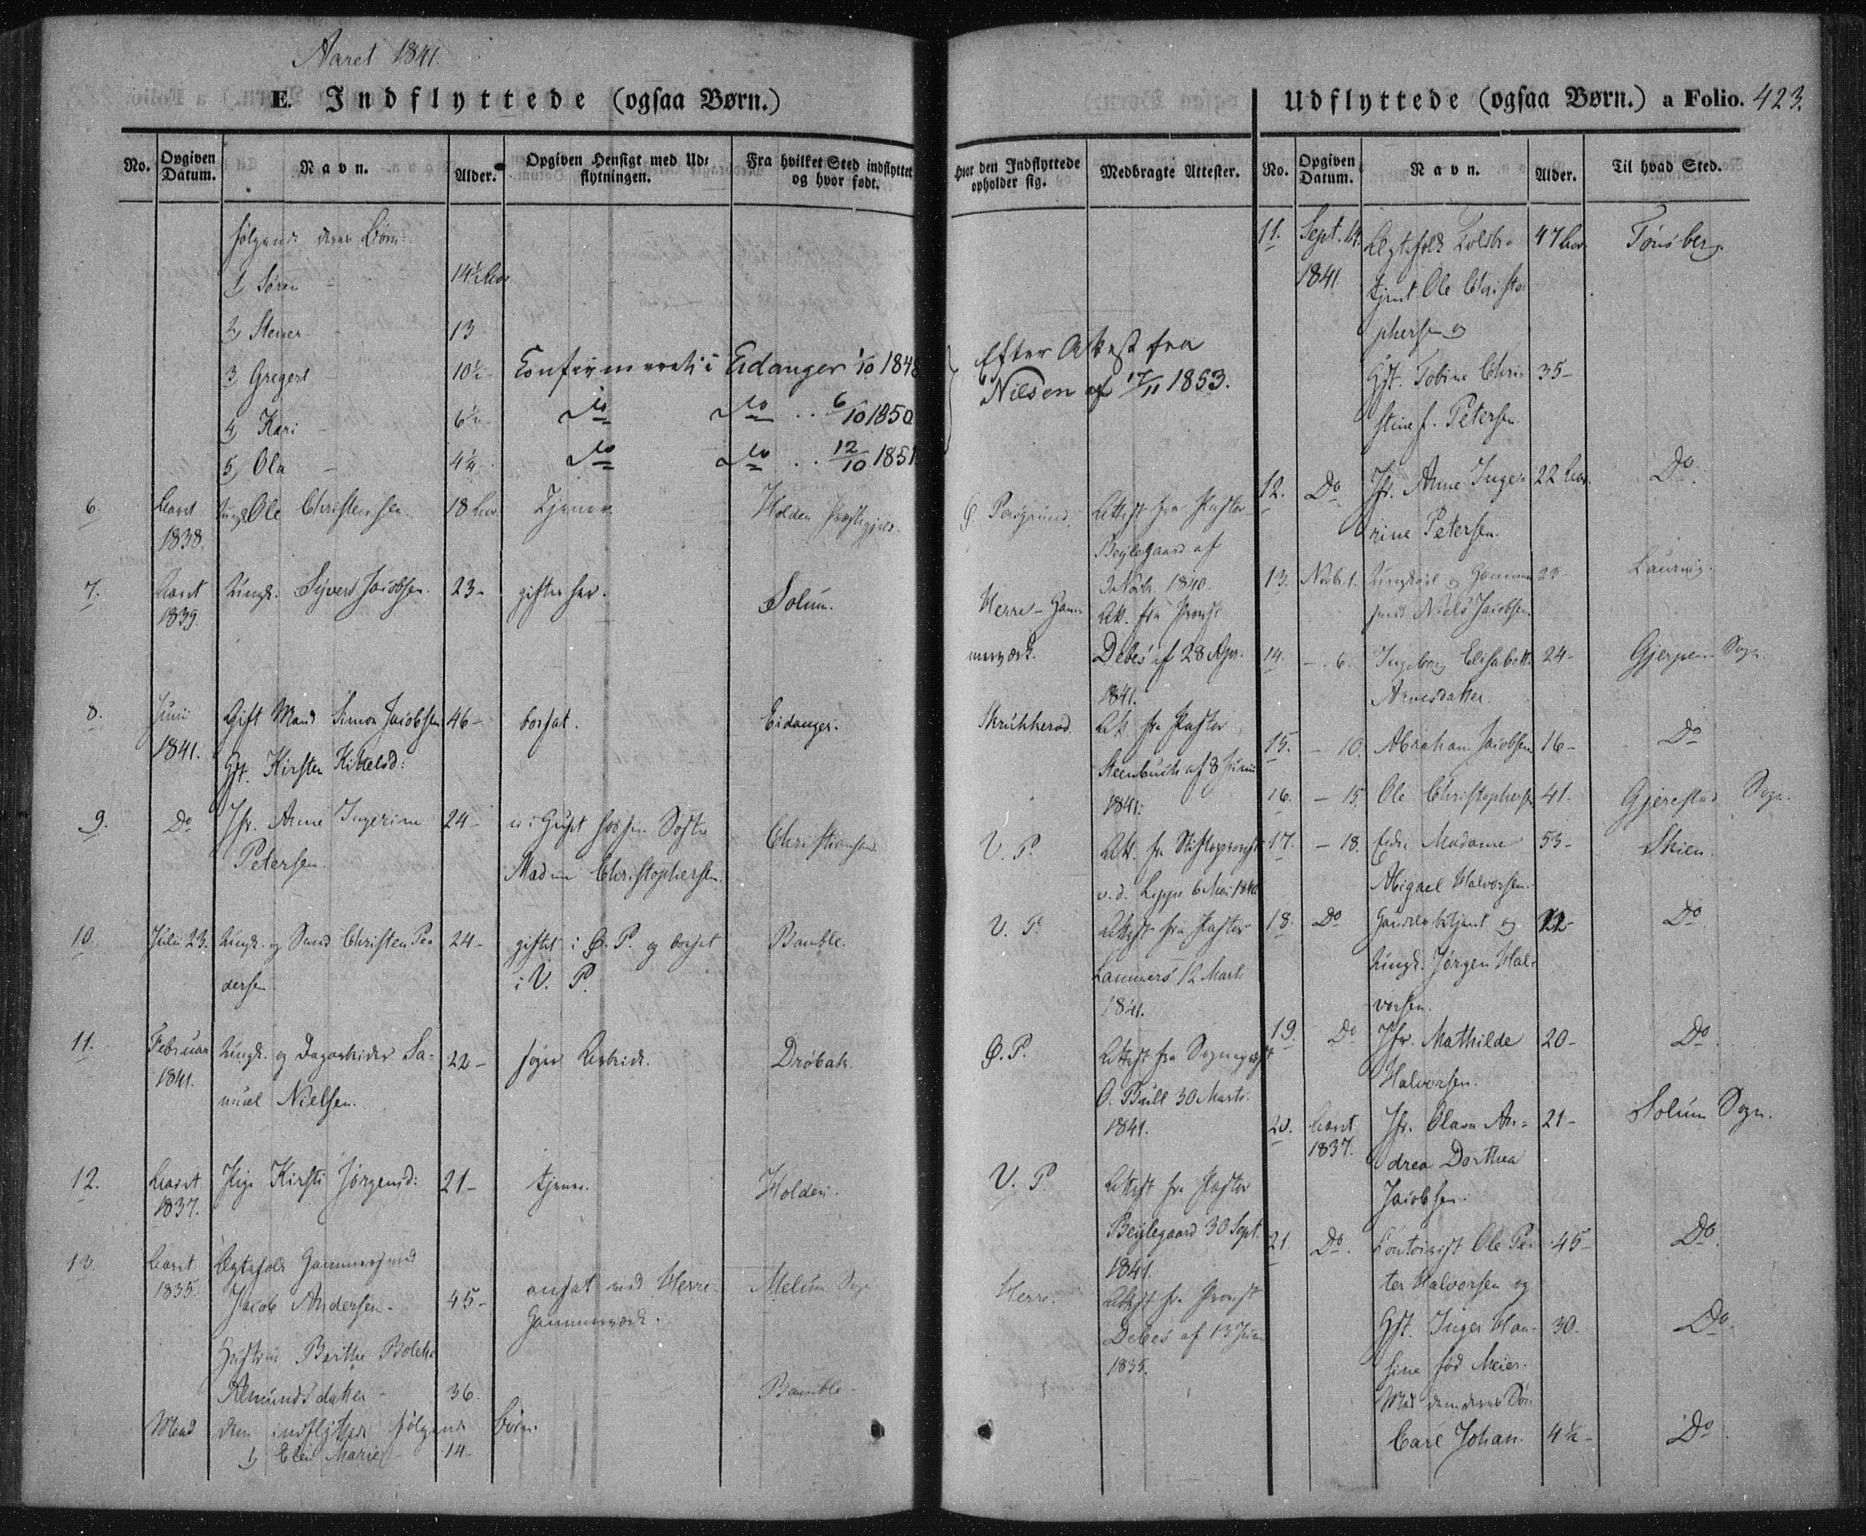 Aaret 1841.
E. Indflyttede (ogsaa Børn.)
No.
Opgiven Datum.
Navn.
Alder.
Opgiven Hensigt med Udflytningen.
Fra hvilket Sted indflyttet og hvor født.
følgende deres Børn:
1, Søren 14½ Aar
2, Stener 13
3, Gregert 10½ Confirmeret i Eidanger 1/10 1848
4, Kari 6½ Do Do .. 6/10 1850
5, Ola 4¼ Do Do .. 12/10 1851
6. Aaret Ungk. Ole Christensen 18 Aar Tjener Holden Præstegjeld.
1838.
7. Aaret Ungk. Syvert Jacobsen. 23- gifter sig. Solum.
1839.
8. Juni Gift Mand Simon Jacobsen 46- bosat. Eidanger.
1841. Gift. Kirsten Kittelsd:
9. Do Jfr. Anne Ingerine 24- i Huset hos sin Søster Christiansand.
Petersen. Madme Christophersen.
10. Juli 23. Ungk. og Smed Christen Pe- 24- giftet i Ø. P. og bosat Bamble.
dersen. i V. P.
11. Februar Ungk. og Dagarbeider Sa- 22- søger Arbeide. Drøbak.
1841. muel Nielsen.
12. Aaret Pige Kirsti Jørgensd: 21- tjener. Holden.
1837.
13. Aaret Ægtefolk Hammersmed
1835. Jacob Andersen- 45- ansat ved Herre- Melum Sogn
Hammerværk.
Hustru Berthe Bolette
Amundsdatter- 36. Bamble-
Med dem indflyttede følgende Børn:
1, Elen Marie 14-
Udflyttede (ogsaa Børn.) a Folio. 423.
Hvor den Indflyttede opholder sig.
Medbragte Attester.
No.
Opgiven Datum.
Navn.
Alder.
Til hvad Sted.
Efter Attest fra
Nielsen af 17/11 1853.
Ø. Porsgrund. Attest fra Pastor
Beylegaard af
3 Novbr. 1840.
Herre-Ham- Att. fra Provst
merværk. Debes af 28 Apr.
1841.
Skrukkerød. Att. fra Pastor
Steenbuch af 8 Juni
1841.
V. P. Att. fra Stiftsprovst
v. d. Lippe 6 Mai 1840
V. P. Attest fra Pastor
Lammers 12 Mart.
1841.
Ø. P. Attest fra Sognepræst
O. Bull 30 Marts
1841.
V. P. Attest fra Pastor
Beylegaard 30 Sept.
1841.
Herre. Attest fra Provst
Debes af 13 Juni
1835.
11. Sept. 14. Ægtefolk Toldbe- 47 Aar Tønsberg.
1841. tjent Ole Christo-
phersen og
Hst. Tobine Chri- 35-
stine f. Petersen
12. Do Jfr. Anne Inge- 22 Aar. Do.
rine Petersen.
13. Novbr. 1. Ungkarl og Hammer- 23- Laurvig.
smed Niels Jacobsen
14. - 6. Ingeborg Elisabeth 24- Gjerpen Sogn.
Arnesdatter.
15. - 10. Abraham Jacobsen 16- Do
16. - 15. Ole Christophersen 41. Gjerestad Sogn.
17. - 18. Enke Madame 53- Skien.
Abigael Halvorsen.
18. Do Handelsbetjent og 22- Do
Ungk. Jørgen Hal-
vorsen.
19. Do Jfr. Mathilde 20- Do
Halvorsen.
20. Aaret Jfr. Olava An- 21- Solum Sogn.
1837. drea Dorthea
Jacobsen.
21. Do. Contorist Ole Pe- 45- Do
ter Halvorsen og
Hst. Inger Han- 30. Do.
sine fød Meier.
Med dem deres Søn
Carl Johan. 4½- Do